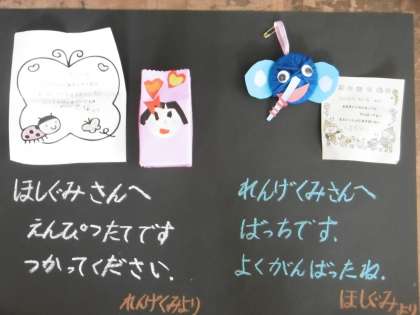 ほしぐみさんへ
えんぴつたてです
つかってください.
れんげぐみより
れんげくみさんへ
ばっちです.
よくがんばったね.
ほしぐみより